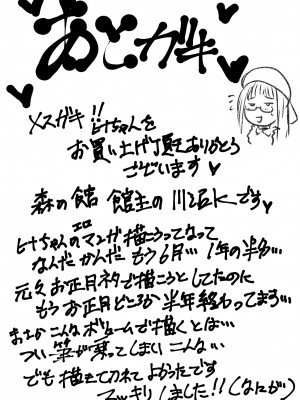 あとガキ
メスガキ!!ヒナちゃんを
お買い上げ頂きありがとう
ございます
森の館 館主の川石Kです
ヒナちゃんのエロマンガ描こうってなって
なんだかんだもう6月…1年の半分…
元々お正月ネタで描こうとしてたのに
もうお正月どころか半年終わってます…
まさかこんなボリュームで描くとは…
つい筆が乗ってしまいこんな…
でも描きて よかったです
スッキリしました!!(なにが)